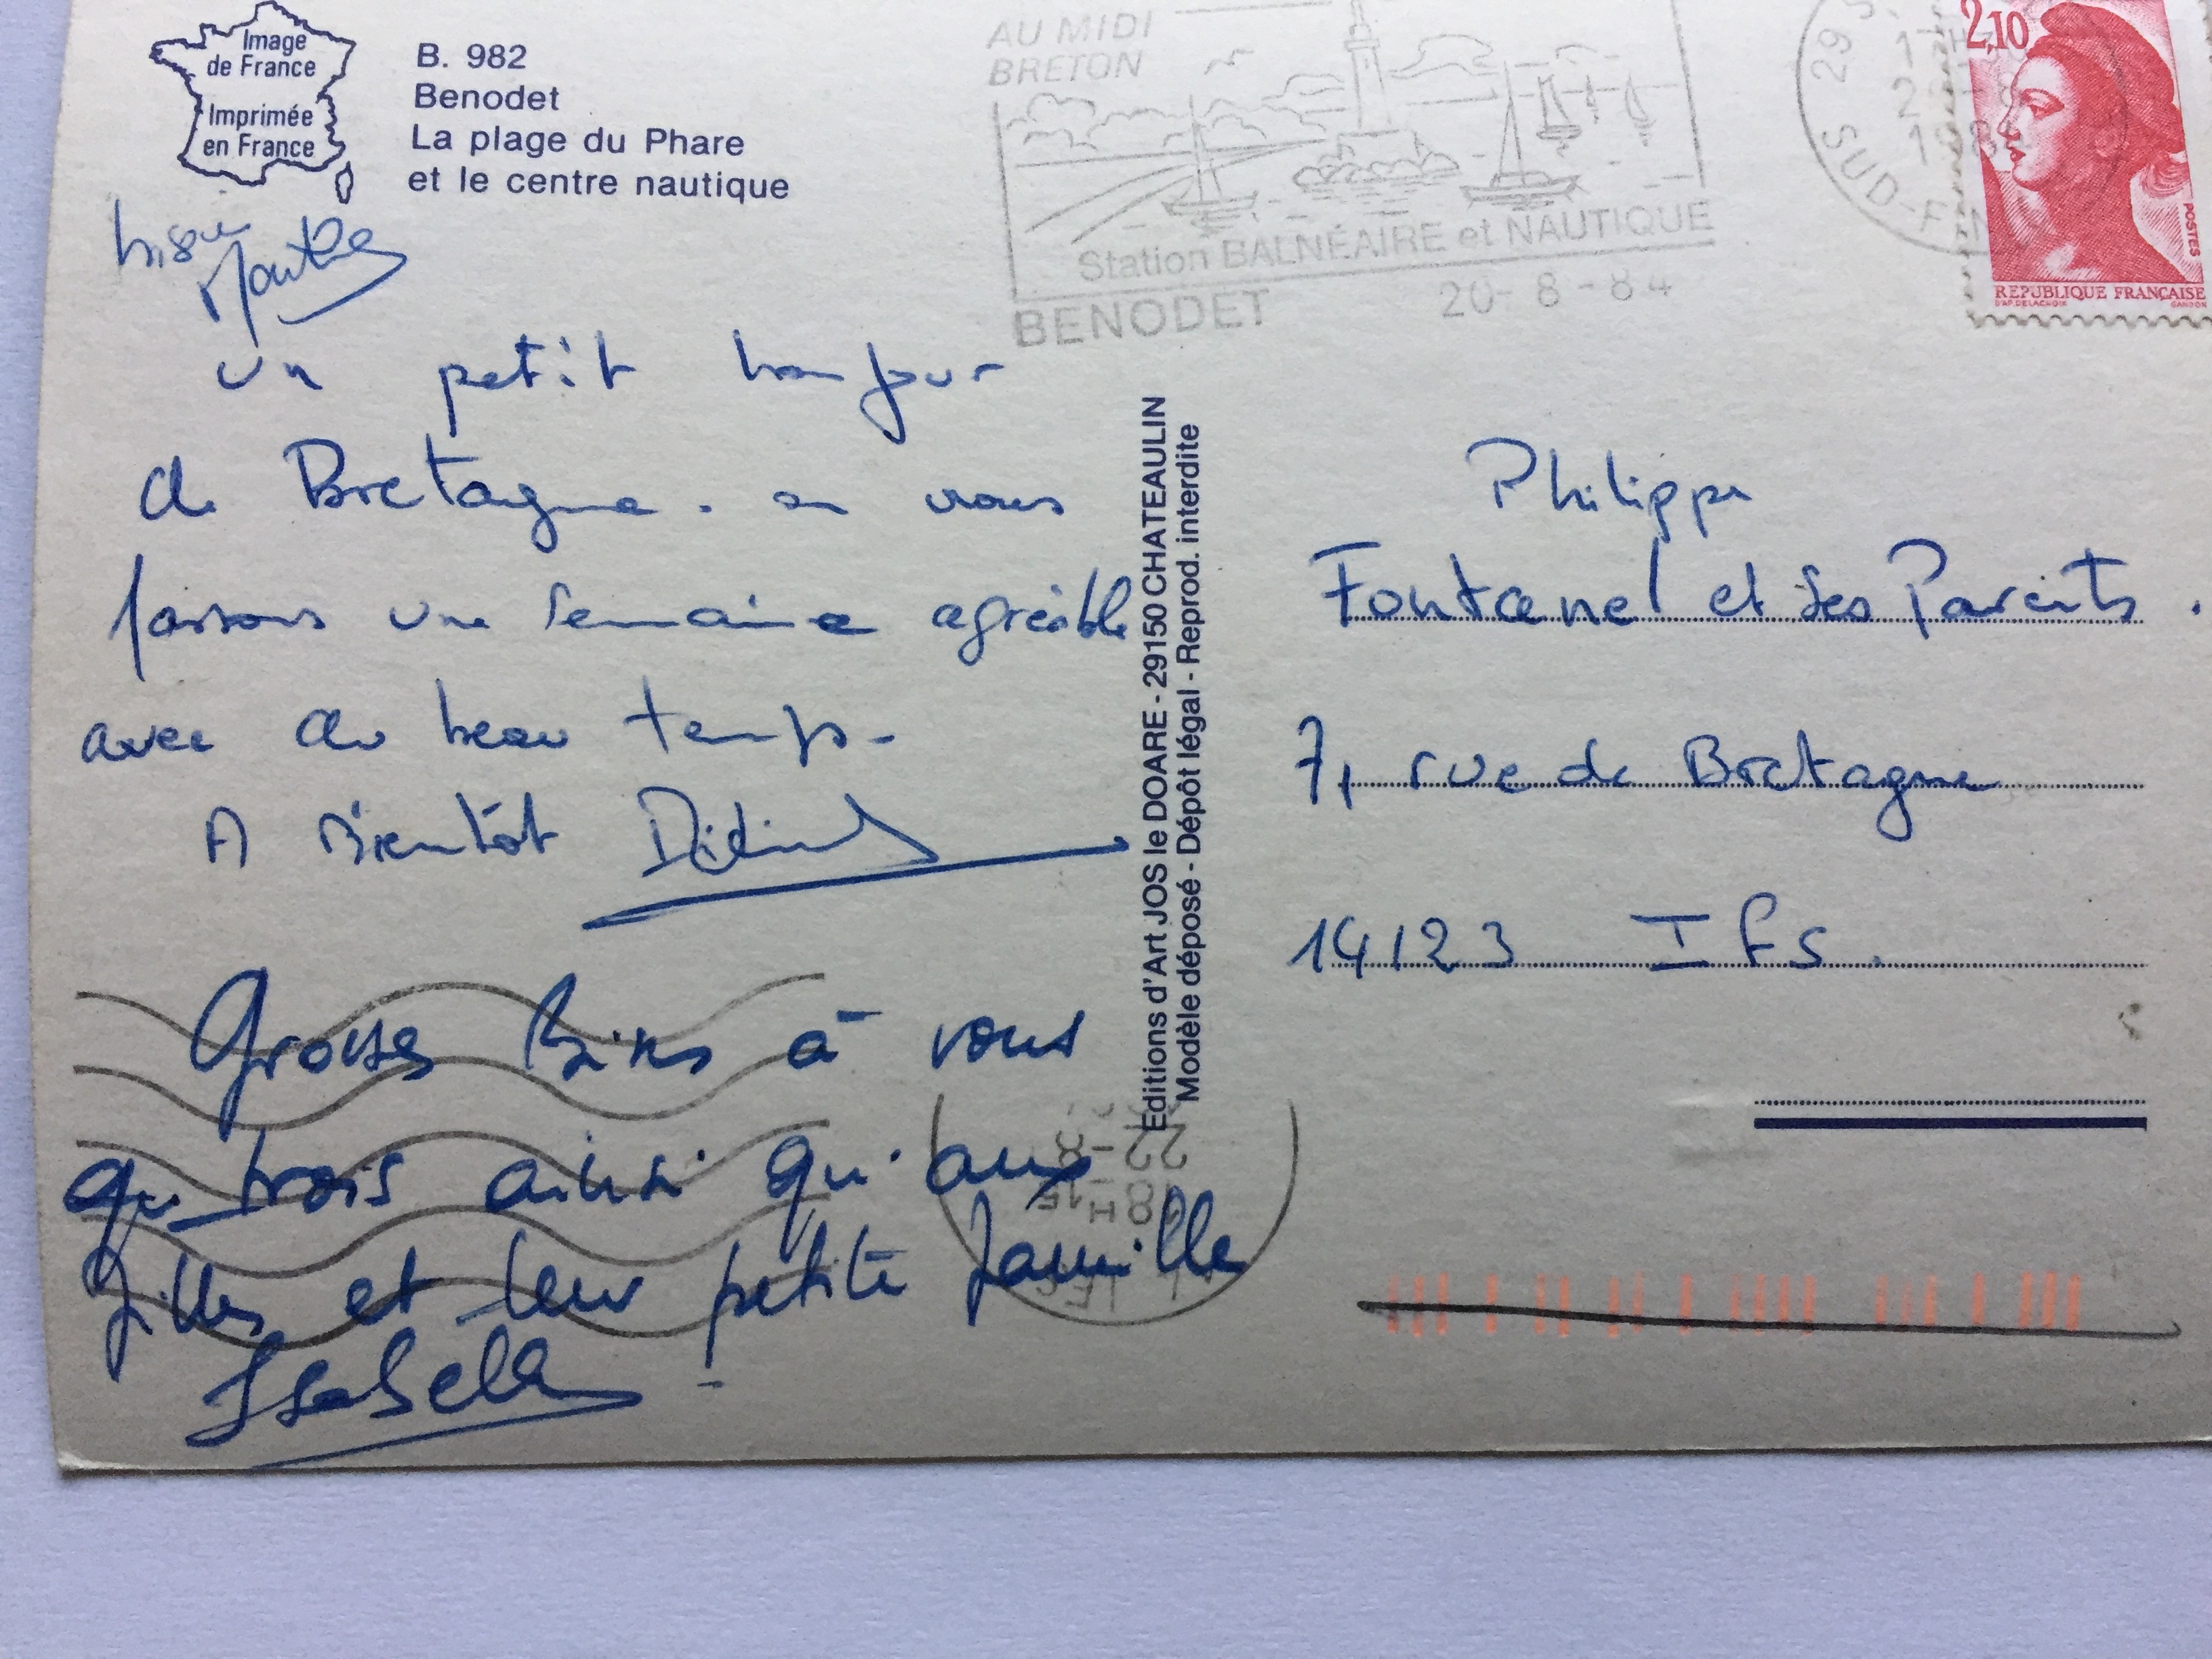 Image
de France
Imprimée
en France
B. 982
Benodet
La plage du Phare
et le centre nautique
AU MIDI
BRETON
Station BALNÉAIRE et NAUTIQUE
BENODET
20-8-84
29
SUD-FIN
2,10
POSTES
REPUBLIQUE FRANÇAISE
GANDON
un petit bonjour
de Bretagne. on vous
passons une semaine agréable
avec du beau temps-
A Bientôt
Grosses Bises à vous
trois ainsi qu'aux
Gilles et leur petite famille
Isabelle
Editions d'Art JOS le DOARE - 29150 CHATEAULIN
Modèle déposé - Dépôt légal - Reprod. interdite
Philippe
Fontanel et ses Parents.
7, rue de Bretagne
14123 Ifs.
22-8
18H15